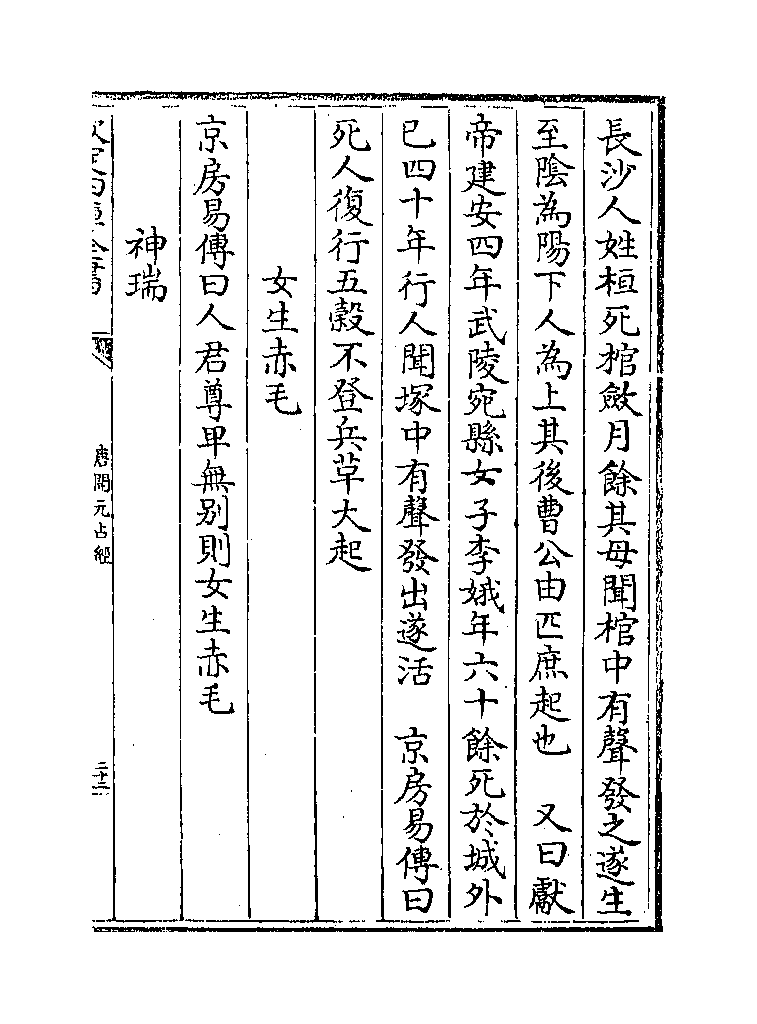 長沙人姓桓死棺斂月餘其母聞棺中有聲發之遂生
至陰為陽下人為上其後曹公由匹庶起也　又曰獻
帝建安四年武陵宛縣女子李娥年六十餘死於城外
已四十年行人聞塚中有聲發出遂活　京房易傳曰
死人復行五穀不登兵草大起
女生赤毛
京房易傳曰人君尊卑無别則女生赤毛
神瑞
唐開元占經
二十三